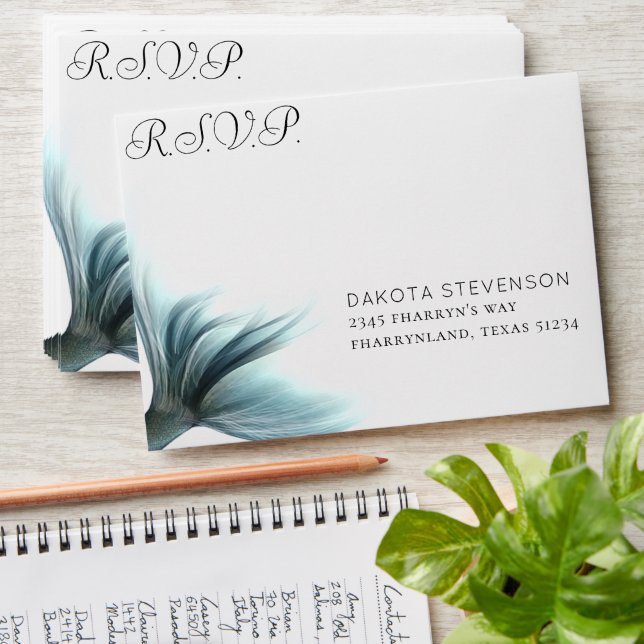 R.S.V.P.
R.S.V.P.
DAKOTA STEVENSON
2345 FHARRYN'S WAY
FHARRYNLAND, TEXAS 51234
Contacts
Amy
208 Ford
Salinas,
Brian
70 Ina
Torino
Italy
Casey
6450
Pasad
Claire
1442
Mode
Dad
2414
Bak
Davi
318